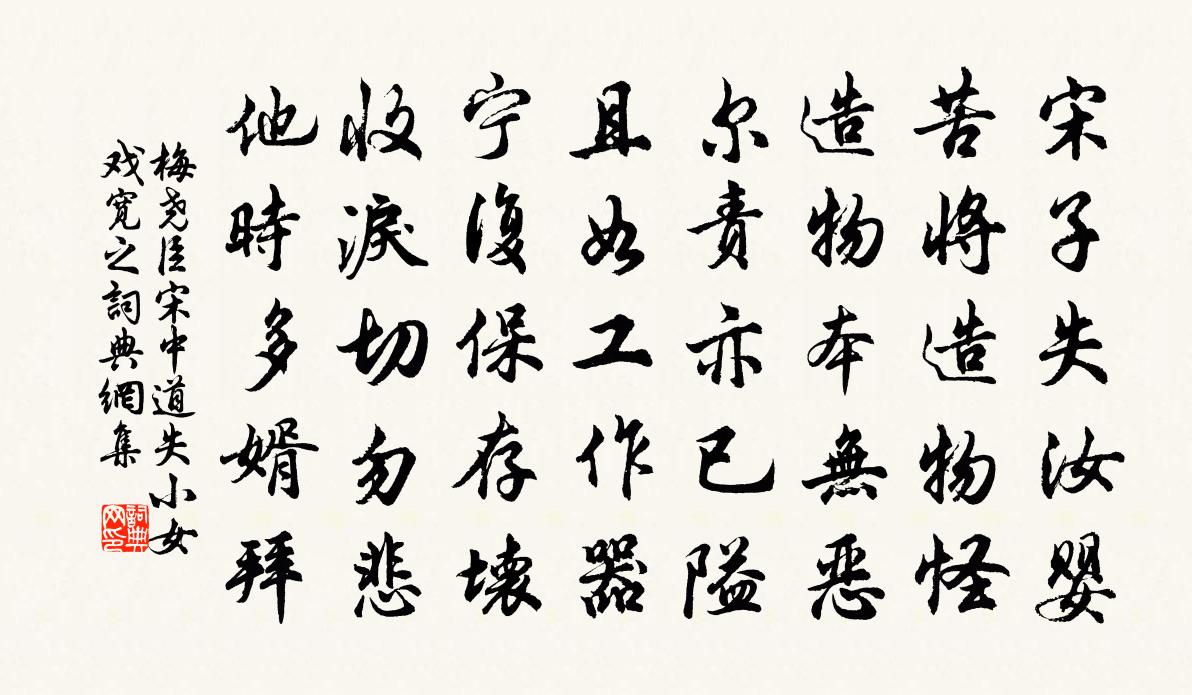 宋子失汝嬰
苦將造物怪
造物本無惡
尔責亦已隘
且如工作器
宁復保存壊
收淚切勿悲
他時多婿拜
梅尧臣宋中道失小女
戏寛之詞典網集
詞典网印